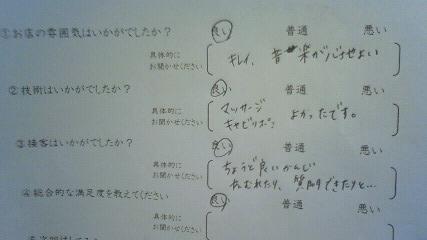 ①お店の雰囲気はいかがでしたか？ 良い 普通 悪い
具体的に
お聞かせください
キレイ、音楽が心地よい
②技術はいかがでしたか？ 良い 普通 悪い
具体的に
お聞かせください
マッサージ
キャビリポ よかったです。
③接客はいかがでしたか？ 良い 普通 悪い
具体的に
お聞かせください
ちょうど良いかんじ
質問できたりと…
④総合的な満足度を教えてください 良い 普通 悪い
具体的に
お聞かせください